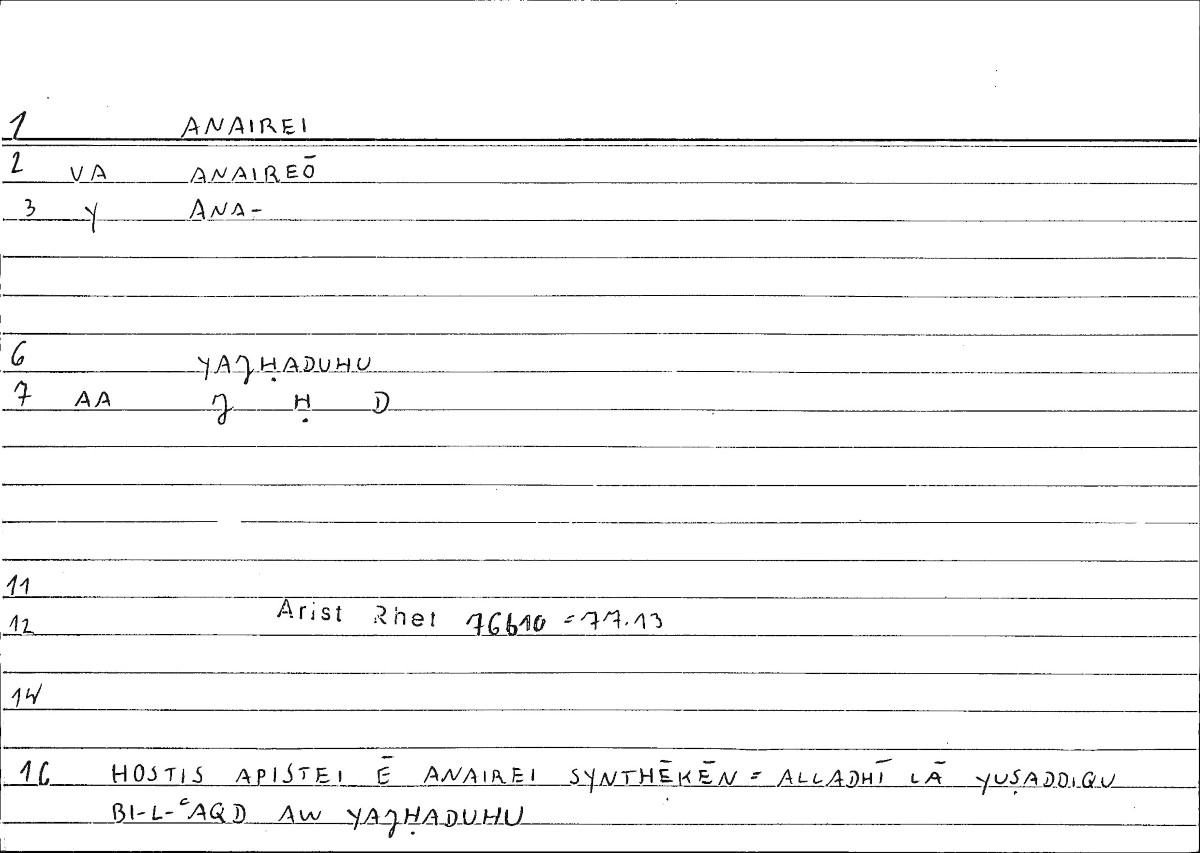 1 ANAIREI
2 VA ANAIREŌ
3 Y ANA-
6 YAJḤADUHU
7 AA J Ḥ D
11
12 Arist Rhet 76b10 = 77.13
14
16 HOSTIS APISTEI Ē ANAIREI SYNTHĒKĒN = ALLADHĪ LĀ YUṢADDIQU
BI-L-ʿAQD AW YAJḤADUHU